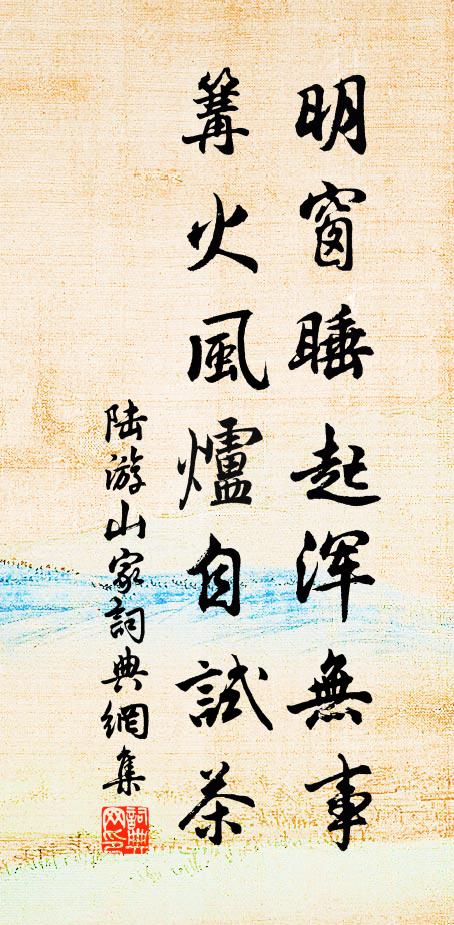 明窗睡起浑無事
篝火風爐自試茶
陆游山家詞典網集
詞典网印